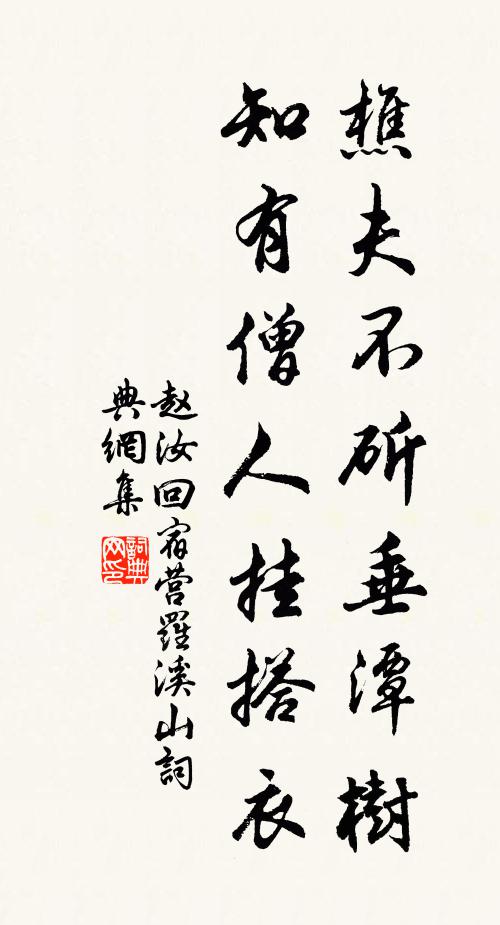 樵夫不斫垂潭樹
知有僧人挂搭衣
赵汝回宿营羅溪山詞
典網集
詞典
网印